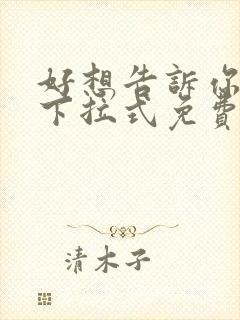 好想告訴你
下拉式免費
清木子